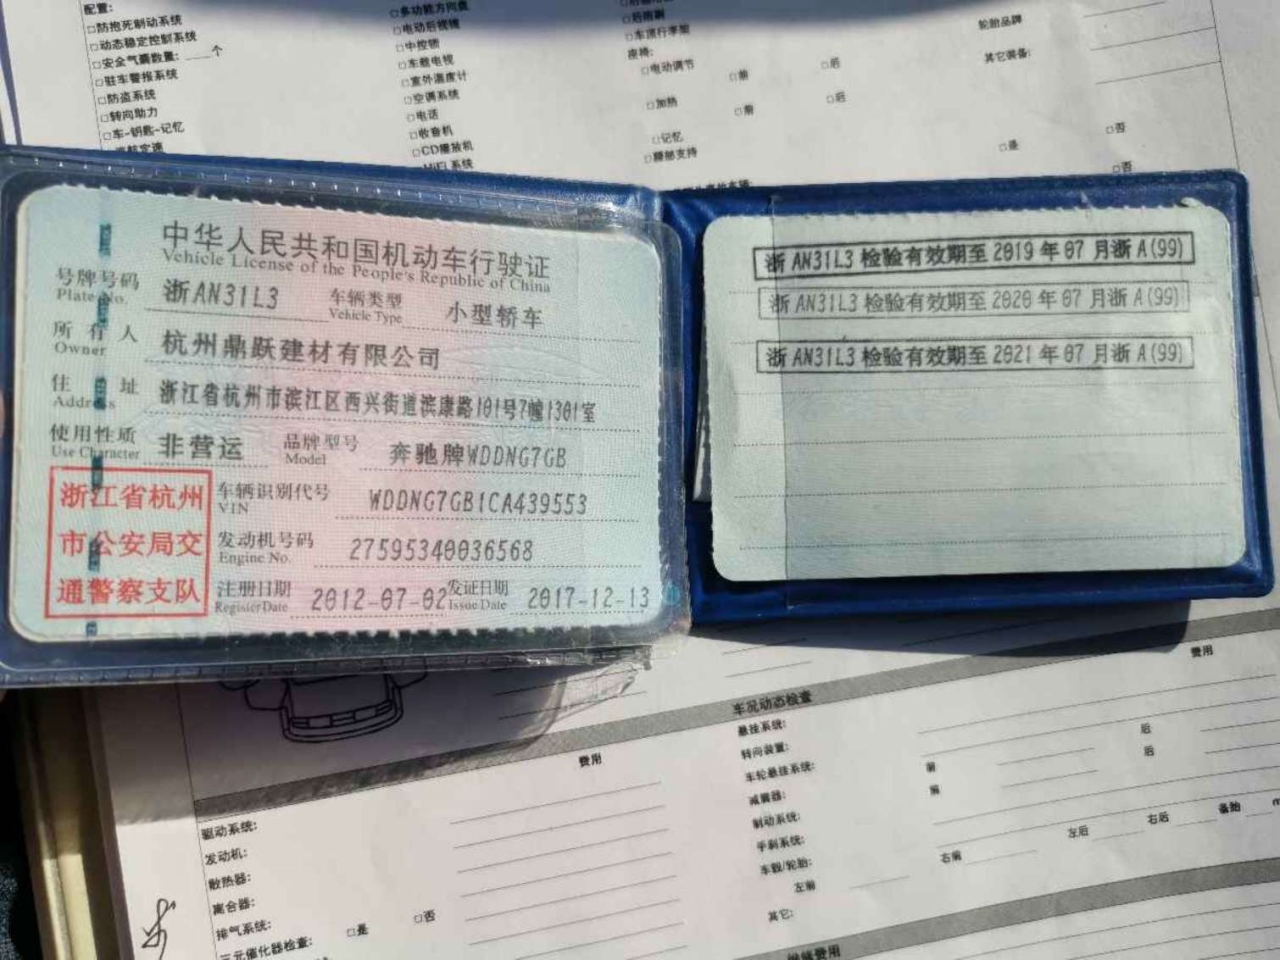 配置:
□防抱死制动系统
□动态稳定控制系统
□安全气囊数量: ____个
□驻车警报系统
□防盗系统
□转向助力
□车-钥匙-记忆
□多功能方向盘
□电动后视镜
□中控锁
□车载电视
□室外温度计
□空调系统
□电话
□收音机
□CD播放机
□车顶行李架
座椅:
□电动调节 □前 □后
□加热 □前 □后
□记忆
□腰部支持
轮胎品牌
其它装备:
□是 □否
□否
中华人民共和国机动车行驶证
Vehicle License of the People's Republic of China
号牌号码 浙AN31L3 车辆类型 小型轿车
Plate No. Vehicle Type
所有人 杭州鼎跃建材有限公司
Owner
住址 浙江省杭州市滨江区西兴街道滨康路101号7幢1301室
Address
使用性质 非营运 品牌型号 奔驰牌WDDNG7GB
Use Character Model
浙江省杭州
市公安局交
通警察支队
车辆识别代号 WDDNG7GB1CA439553
VIN
发动机号码 27595340036568
Engine No.
注册日期 2012-07-02 发证日期 2017-12-13
Register Date Issue Date
浙AN31L3检验有效期至2019年07月浙A(99)
浙AN31L3检验有效期至2020年07月浙A(99)
浙AN31L3检验有效期至2021年07月浙A(99)
费用
车况动态检查
费用
驱动系统:
发动机:
散热器:
离合器:
排气系统: □是 □否
三元催化器检查:
悬挂系统:
转向装置: 后
车轮悬挂系统: 前 后
减震器: 前
制动系统:
手刹系统:
车毂/轮胎: 右前 左后 右后 备胎
左前
其它: